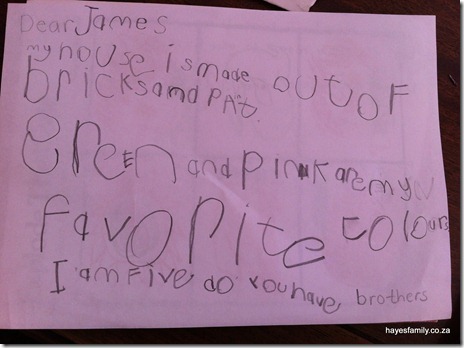 Dear James
my house is made out of
bricks and PAiT.
Green and pink are my
favorite colours
I am Five do you have brothers
hayesfamily.co.za